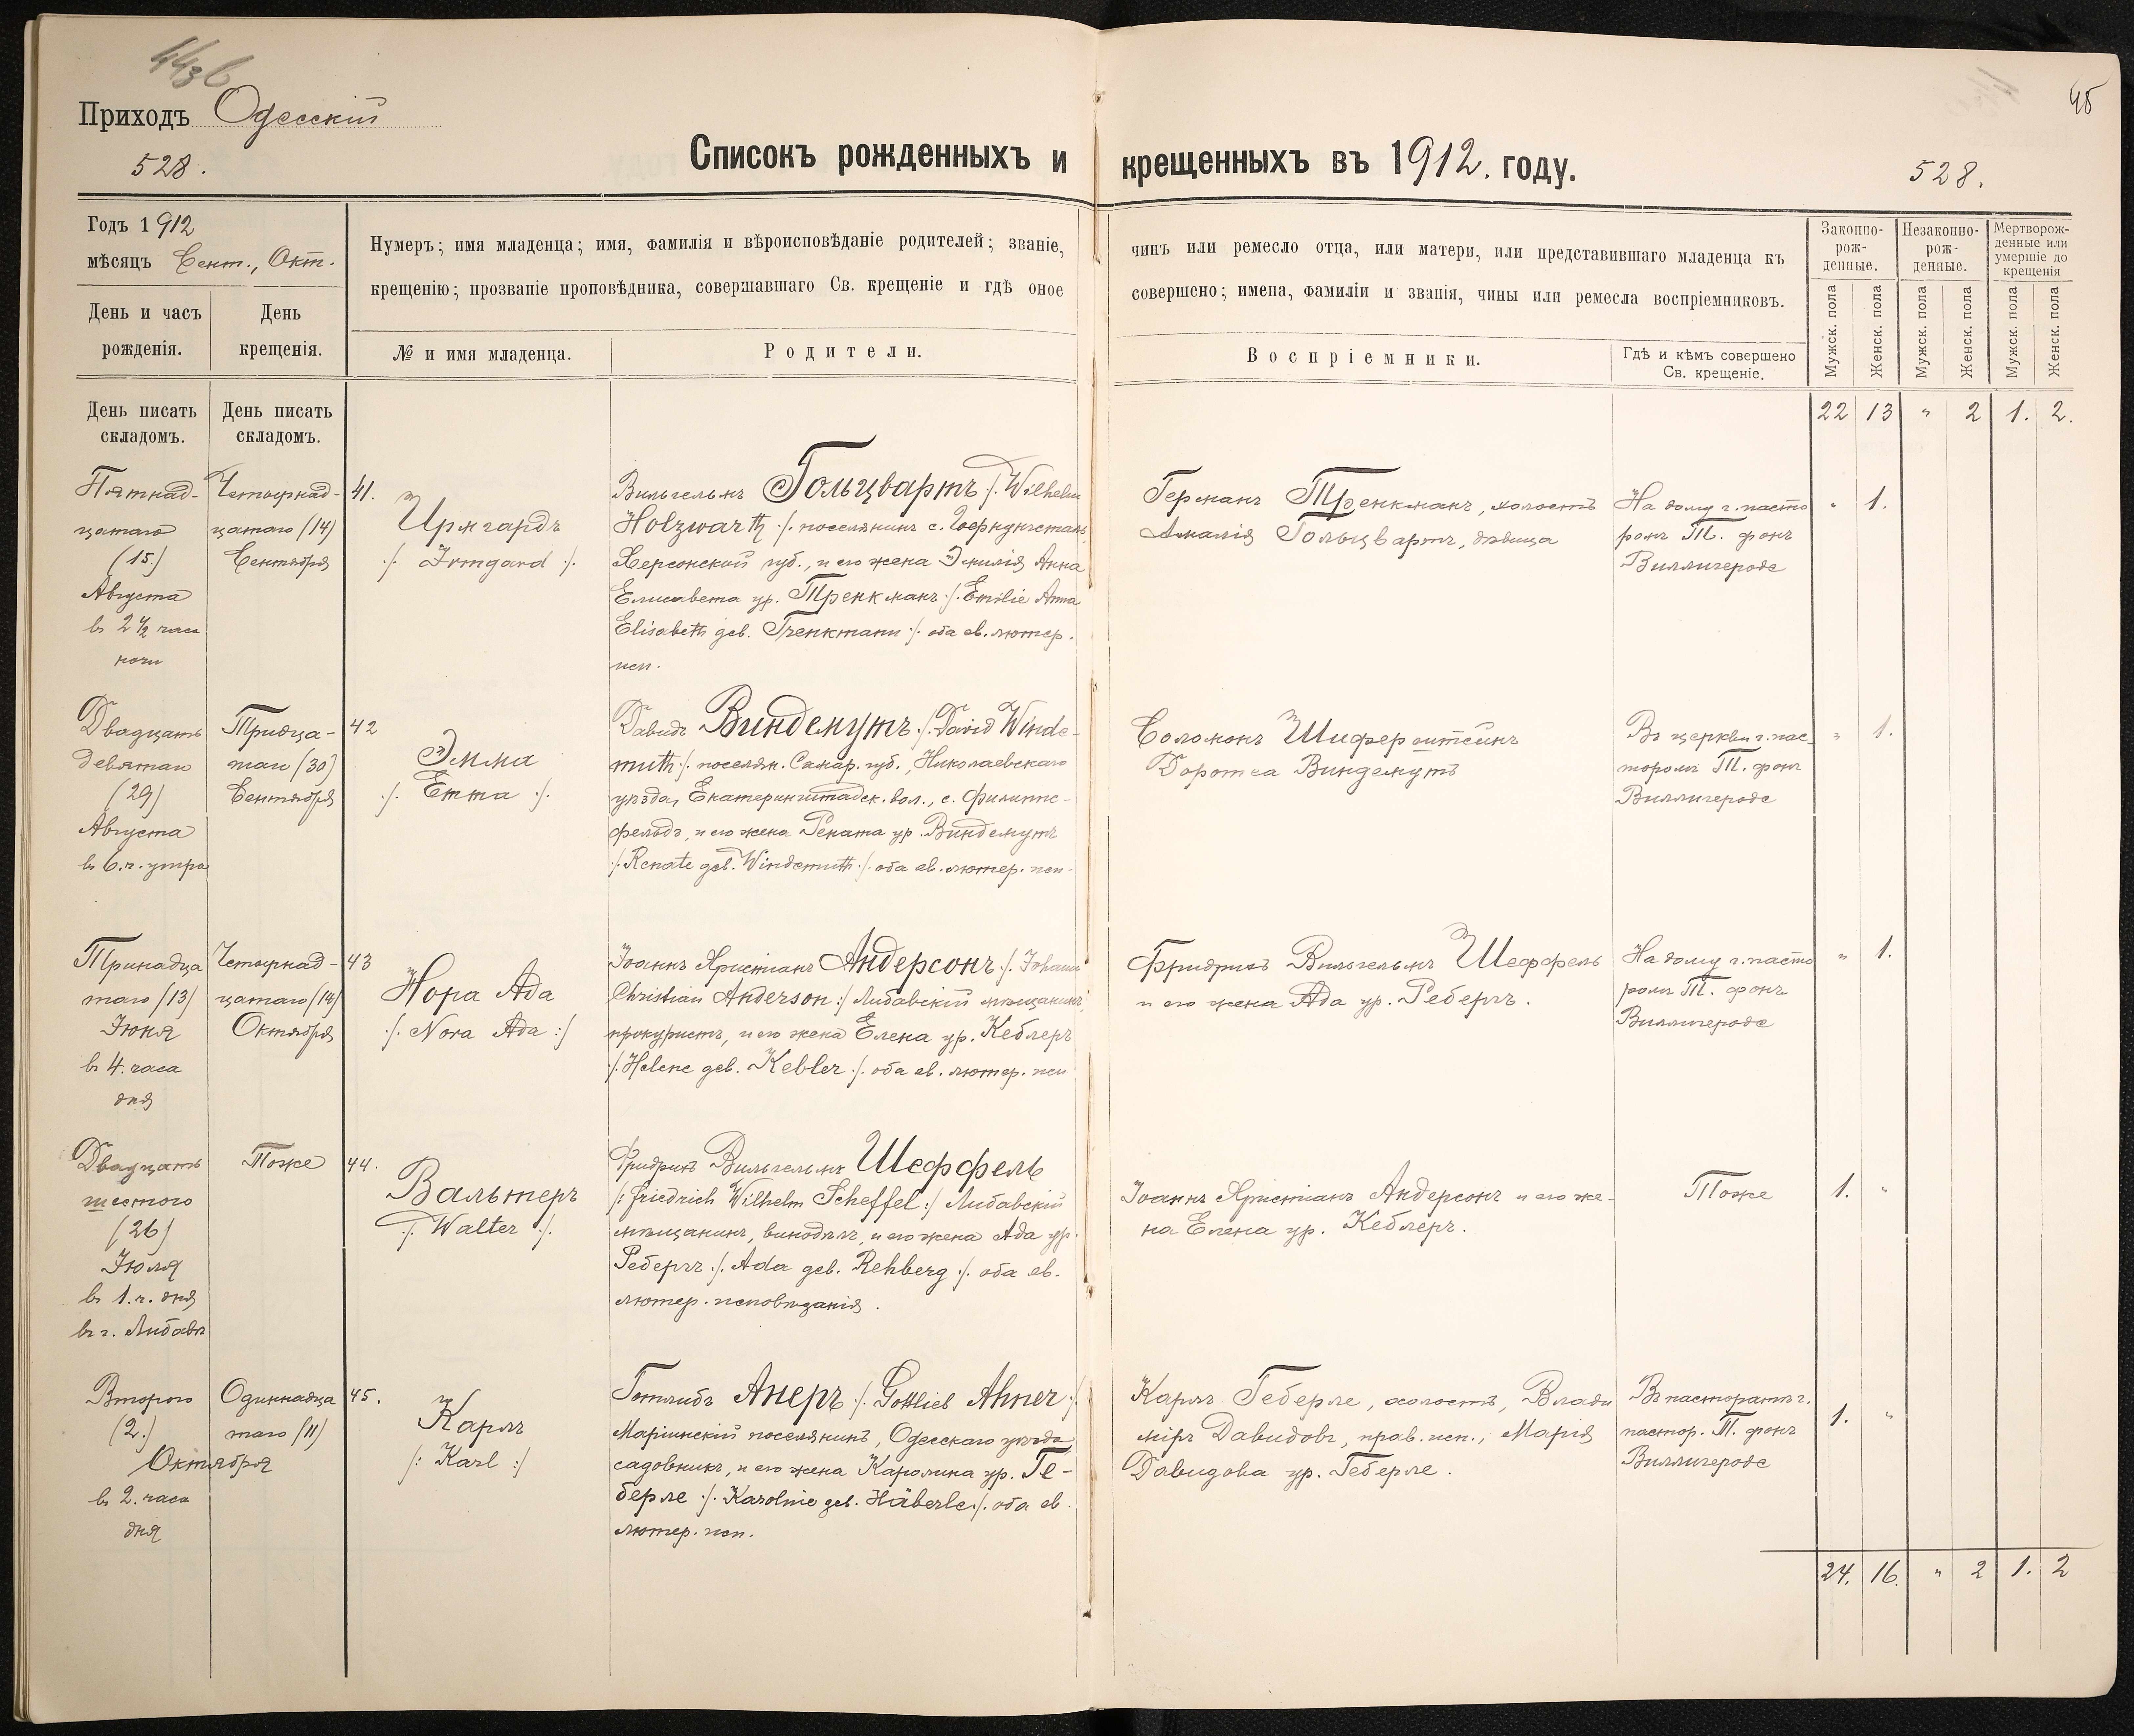 443 б
45
Приходъ Одесскій
528.
Списокъ рожденныхъ и крещенныхъ въ 1912. году.
528.
Годъ 1912
мѣсяцъ Сент., Окт.
День и часъ рожденія.
День крещенія.
Нумеръ; имя младенца; имя, фамилія и вѣроисповѣданіе родителей; званіе, чинъ или ремесло отца, или матери, или представившаго младенца къ
крещенію; прозваніе проповѣдника, совершавшаго Св. крещеніе и гдѣ оное совершено; имена, фамиліи и званія, чины или ремесла воспріемниковъ.
№ и имя младенца.
Родители.
Воспріемники.
Гдѣ и кѣмъ совершено
Св. крещеніе.
Законно-
рож-
денные.
Незаконно-
рож-
денные.
Мертворож-
денные или
умершіе до
крещенія
Мужск. пола
Женск. пола
Мужск. пола
Женск. пола
Мужск. пола
Женск. пола
День писать
складомъ.
День писать
складомъ.
22 13 " 2 1. 2.
Пятнад-
цатаго
(15.)
Августа
въ 2 ½ часа
ночи
Четырнад-
цатаго (14)
Сентября
41.
Ирмгардъ
/. Irmgard :/.
Вильгельмъ Гольцвартъ /. Wilhelm
Holzwarth :/. поселянинъ с.
Херсонской губ., и его жена Эмилія Анна
Елисавета ур. Тренкманъ /. Emilie Anna
Elisabeth geb. Trenkmann :/. оба ев. лютер.
исп.
Германъ Тренкманъ, холостъ
Амалія Гольцвартъ, дѣвица
На дому г. пасто
ромъ Т. фонъ
Виллигероде
" 1.
Двадцать
девятаго
(29)
Августа
въ 6. ч. утра
Тридца-
таго (30)
Сентября
42
Эмма
/. Emma :/.
Давидъ Виндемутъ /. David Winde-
muth :/. поселян. Самар. губ., Николаевскаго
уѣзда, Екатериншадтск. вол., с. Филиппс-
фельдъ, и его жена Рената ур. Виндемутъ
/. Renate geb. Windemuth :/. оба ев. лютер. исп.
Соломонъ Шиферштейнъ
Доротеа Виндемутъ
Въ церкви г. пас-
торомъ Т. фонъ
Виллигероде
" 1.
Тринадца
таго (13)
Іюня
въ 4. часа
дня
Четырнад-
цатаго (14)
Октября
43
Нора Ада
/. Nora Ada :/
Іоаннъ Христіанъ Андерсонъ /. Johann
Christian Anderson :/ Либавскій мѣщанинъ,
прокуристъ, и его жена Елена ур. Кеблеръ
/. Helene geb. Kebler :/. оба ев. лютер. исп
Фридрихъ Вильгельмъ Шеффель
и его жена Ада ур. Ребергъ.
На дому г. пасто
ромъ Т. фонъ
Виллигероде
" 1.
Двадцать
шестого
(26)
Іюля
въ 1. ч. дня
въ г. Либавѣ
Тоже
44.
Вальтеръ
/. Walter :/.
Фридрихъ Вильгельмъ Шеффель
/: Friedrich Wilhelm Scheffel :/ Либавскій
мѣщанинъ, винодѣлъ, и его жена Ада ур.
Ребергъ /. Ada geb. Rehberg :/. оба ев.
лютер. исповѣданія.
Іоаннъ Христіанъ Андерсонъ и его же-
на Елена ур. Кеблеръ.
Тоже
1. "
Второго
(2.)
Октября
въ 2. часа
дня
Одиннадца
таго (11)
45.
Карлъ
/: Karl :/
Готлибъ Анеръ /. Gottlieb Ahner :/
Маріинскій поселянинъ, Одесскаго уѣзда
садовникъ, и его жена Каролина ур. Ге-
берле /. Karoline geb. Häberle :/. оба ев.
лютер. исп.
Карлъ Геберле, холостъ, Влади
міръ Давидовъ, прав. исп., Марія
Давидова ур. Геберле.
Въ пасторатѣ г.
пастор. Т. фонъ
Виллигероде
1. "
24. 16. " 2 1. 2